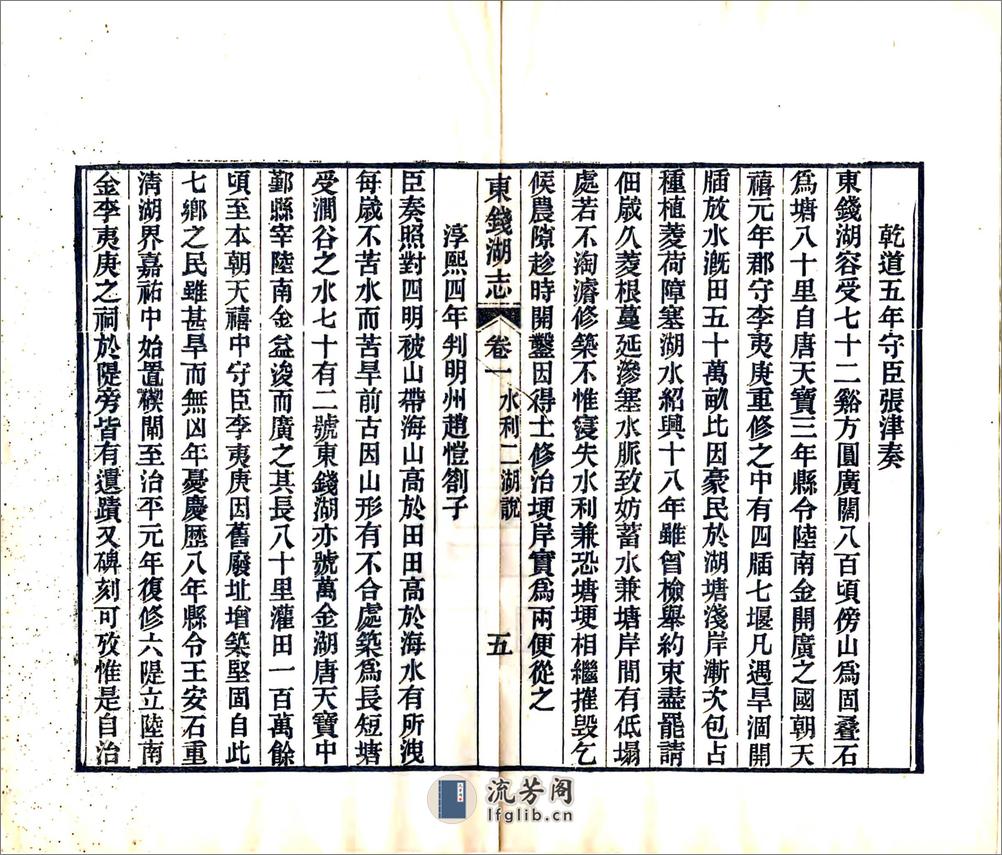 乾道五年守臣張津奏
東錢湖容受七十二谿方圓廣闊八百頃傍山爲固疊石
爲塘八十里自唐天寶三年縣令陸南金開廣之國朝天
禧元年郡守李夷庚重修之中有四牐七堰凡遇旱涸開
牐放水漑田五十萬畝比因豪民於湖塘淺岸漸次包占
種植菱荷障塞湖水紹興十八年雖曾檢舉約束盡罷請
佃歲久菱根蔓延滲塞水脈致妨蓄水兼塘岸間有低塌
處若不淘濬修築不惟寖失水利兼恐塘埂相繼摧毀乞
候農隙趁時開鑿因得土修治埂岸實爲兩便從之
東錢湖志
卷一 水利二 湖說
五
淳熙四年判明州趙愷劄子
臣奏照對四明被山帶海山高於田田高於海水有所洩
每歲不苦水而苦旱前古因山形有不合處築爲長短塘
受澗谷之水七十有二號東錢湖亦號萬金湖唐天寶中
鄞縣宰陸南金益浚而廣之其長八十里灌田一百萬餘
頃至本朝天禧中守臣李夷庚因舊廢址增築堅固自此
七鄉之民雖甚旱而無凶年憂慶歷八年縣令王安石重
淸湖界嘉祐中始置碶閘至治平元年復修六隄立陸南
金李夷庚之祠於隄旁皆有遺蹟又碑刻可攷惟是自治
流芳阁
lfglib.cn